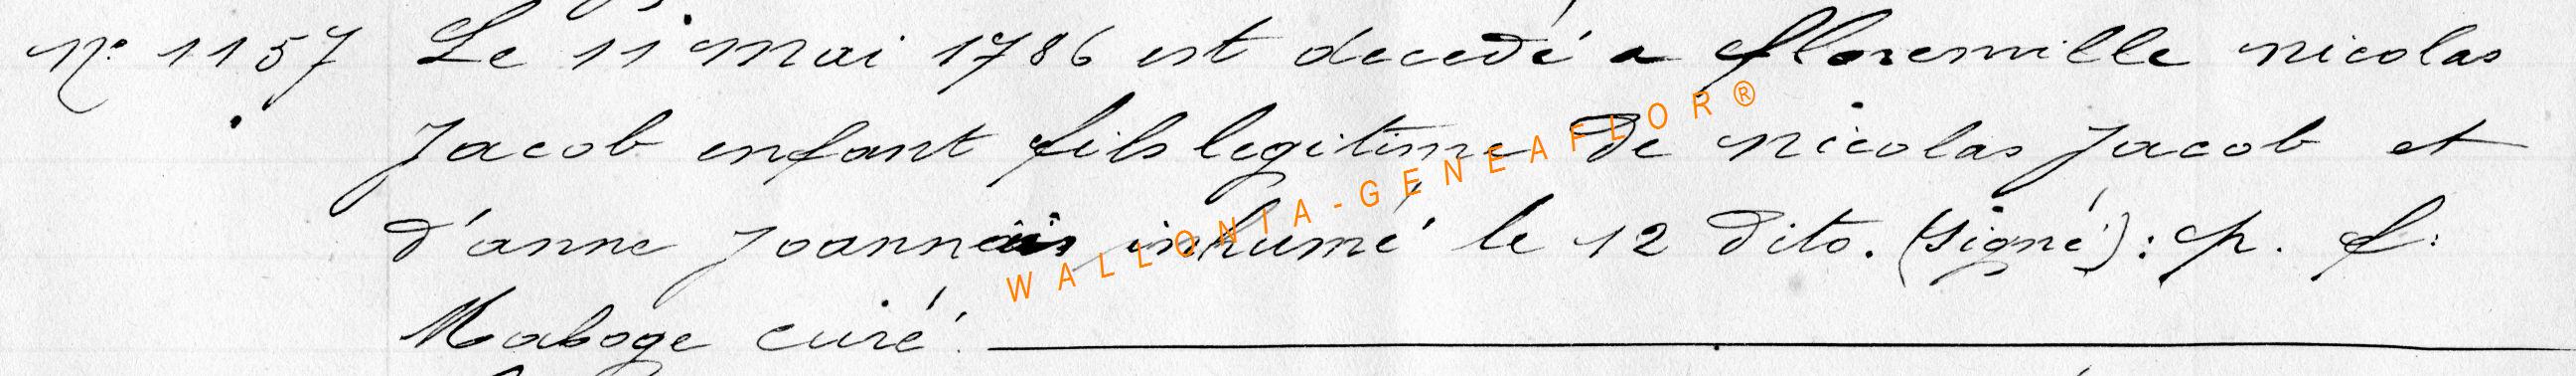 N° 1157 Le 11 mai 1786 est decedé a florenville nicolas
Jacob enfant fils legitime de nicolas Jacob et
d'anne Joannais inhumé le 12 dito. (signé): p. f:
Maboge curé.
WALLONIA-GENEAFLOR®